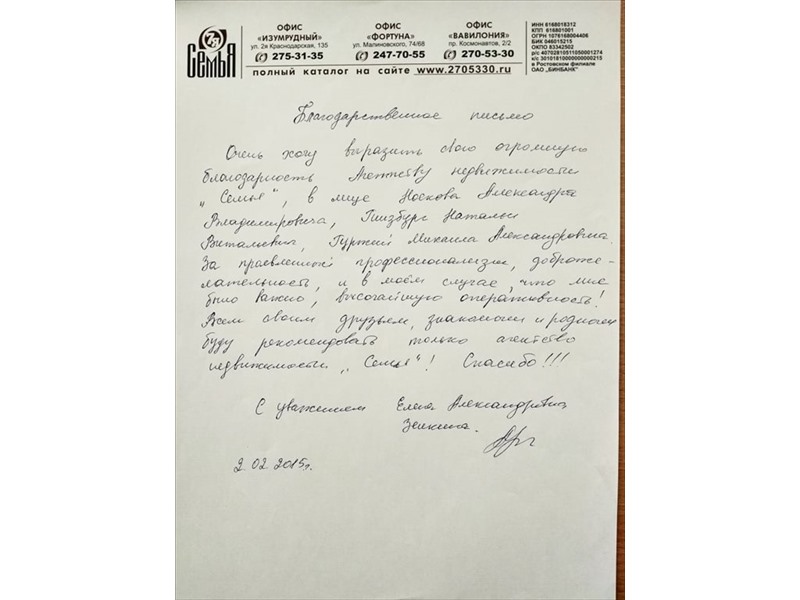 СЕМЬЯ
ОФИС
«ИЗУМРУДНЫЙ»
ул. 2я Краснодарская, 135
275-31-35
ОФИС
«ФОРТУНА»
ул. Малиновского, 74/68
247-70-55
ОФИС
«ВАВИЛОНИЯ»
пр. Космонавтов, 2/2
270-53-30
полный каталог на сайте www.2705330.ru
ИНН 6168018312
КПП 616801001
ОГРН 1076168004406
БИК 046015215
ОКПО 83342502
р/с 40702810511050001274
к/с 30101810000000000215
в Ростовском филиале
ОАО „БИНБАНК"
Благодарственное письмо
Очень хочу выразить свою огромную
благодарность Агентству недвижимости
„Семья", в лице Носкова Александра
Владимировича, Гинзбург Натальи
Витальевны, Гуржий Михаила Александровича.
За проявленный профессионализм, доброже-
лательность, и в моём случае, что мне
было важно, высочайшую оперативность!
Всем своим друзьям, знакомым и родным
буду рекомендовать только агентство
недвижимости „Семья"! Спасибо!!!
С уважением Елена Александровна
2.02.2015г.